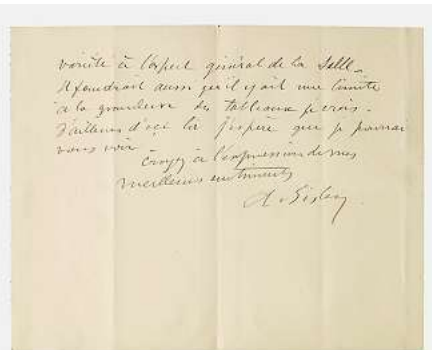 variété à l'aspect général de la Salle.
Il faudrait aussi qu'il y ait une limite
à la grandeur des tableaux je crois.
D'ailleurs d'ici là j'espère que je pourrai
vous voir
Croyez à l'expression de mes
meilleurs sentiments
A. Sisley